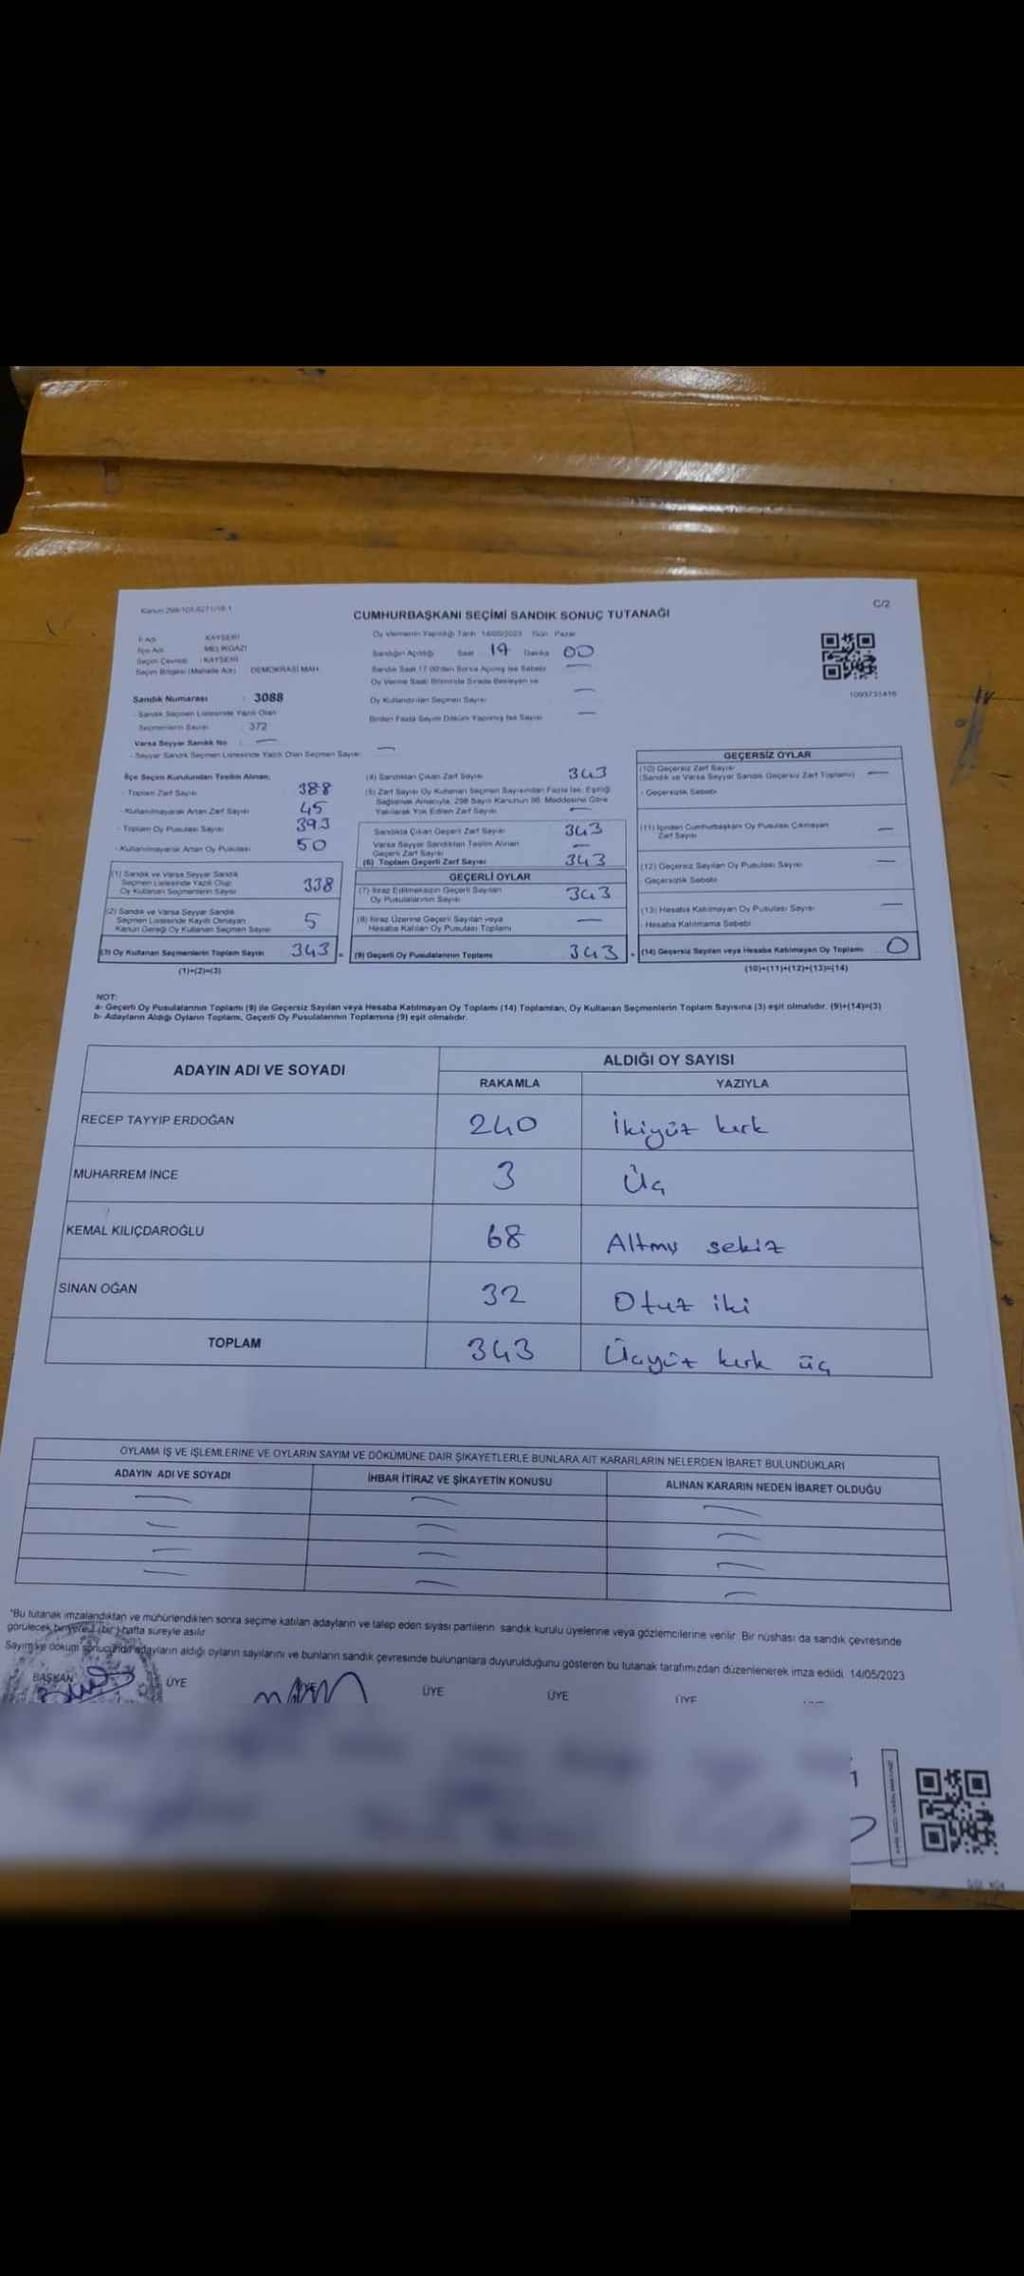 Kanun 298/101-6271/18-1
C/2
CUMHURBAŞKANI SEÇİMİ SANDIK SONUÇ TUTANAĞI
İl Adı KAYSERİ
İlçe Adı MELİKGAZİ
Seçim Çevresi : KAYSERİ
Seçim Bölgesi (Mahalle Adı) DEMOKRASİ MAH.
Sandık Numarası : 3088
- Sandık Seçmen Listesinde Yazılı Olan
Seçmenlerin Sayısı : 372
Varsa Seyyar Sandık No : —
- Seyyar Sandık Seçmen Listesinde Yazılı Olan Seçmen Sayısı —
Oy Vermenin Yapıldığı Tarih 14/05/2023 Gün Pazar
Sandığın Açıldığı Saat 17 Dakika 00
Sandık Saat 17:00'den Sonra Açılmış İse Sebebi —
Oy Verme Saati Bitiminde Sırada Bekleyen ve
Oy Kullandırılan Seçmen Sayısı —
Birden Fazla Sayım Döküm Yapılmış İse Sayısı —
1093731416
İlçe Seçim Kurulundan Teslim Alınan;
- Toplam Zarf Sayısı 388
- Kullanılmayarak Artan Zarf Sayısı 45
- Toplam Oy Pusulası Sayısı 393
- Kullanılmayarak Artan Oy Pusulası 50
(1) Sandık ve Varsa Seyyar Sandık
Seçmen Listesinde Yazılı Olup
Oy Kullanan Seçmenlerin Sayısı 338
(2) Sandık ve Varsa Seyyar Sandık
Seçmen Listesinde Kayıtlı Olmayan
Kanun Gereği Oy Kullanan Seçmen Sayısı 5
(3) Oy Kullanan Seçmenlerin Toplam Sayısı 343
(1)+(2)=(3)
(4) Sandıktan Çıkan Zarf Sayısı 343
(5) Zarf Sayısı Oy Kullanan Seçmen Sayısından Fazla İse; Eşitliği
Sağlamak Amacıyla, 298 Sayılı Kanunun 98. Maddesine Göre
Yakılarak Yok Edilen Zarf Sayısı —
Sandıkta Çıkan Geçerli Zarf Sayısı 343
Varsa Seyyar Sandıktan Teslim Alınan
Geçerli Zarf Sayısı —
(6) Toplam Geçerli Zarf Sayısı 343
GEÇERLİ OYLAR
(7) İtiraz Edilmeksizin Geçerli Sayılan
Oy Pusulalarının Sayısı 343
(8) İtiraz Üzerine Geçerli Sayılan veya
Hesaba Katılan Oy Pusulası Toplamı —
(9) Geçerli Oy Pusulalarının Toplamı 343
GEÇERSİZ OYLAR
(10) Geçersiz Zarf Sayısı
(Sandık ve Varsa Seyyar Sandık Geçersiz Zarf Toplamı) —
- Geçersizlik Sebebi
(11) İçinden Cumhurbaşkanı Oy Pusulası Çıkmayan
Zarf Sayısı —
(12) Geçersiz Sayılan Oy Pusulası Sayısı —
- Geçersizlik Sebebi
(13) Hesaba Katılmayan Oy Pusulası Sayısı —
- Hesaba Katılmama Sebebi
(14) Geçersiz Sayılan veya Hesaba Katılmayan Oy Toplamı 0
(10)+(11)+(12)+(13)=(14)
NOT:
a- Geçerli Oy Pusulalarının Toplamı (9) ile Geçersiz Sayılan veya Hesaba Katılmayan Oy Toplamı (14) Toplamları, Oy Kullanan Seçmenlerin Toplam Sayısına (3) eşit olmalıdır. (9)+(14)=(3)
b- Adayların Aldığı Oyların Toplamı, Geçerli Oy Pusulalarının Toplamına (9) eşit olmalıdır.
ADAYIN ADI VE SOYADI
ALDIĞI OY SAYISI
RAKAMLA YAZIYLA
RECEP TAYYİP ERDOĞAN 240 İkiyüz kırk
MUHARREM İNCE 3 Üç
KEMAL KILIÇDAROĞLU 68 Altmış sekiz
SİNAN OĞAN 32 Otuz iki
TOPLAM 343 Üçyüz kırk üç
OYLAMA İŞ VE İŞLEMLERİNE VE OYLARIN SAYIM VE DÖKÜMÜNE DAİR ŞİKAYETLERLE BUNLARA AİT KARARLARIN NELERDEN İBARET BULUNDUKLARI
ADAYIN ADI VE SOYADI İHBAR İTİRAZ VE ŞİKAYETİN KONUSU ALINAN KARARIN NEDEN İBARET OLDUĞU
"Bu tutanak imzalandıktan ve mühürlendikten sonra seçime katılan adayların ve talep eden siyasi partilerin sandık kurulu üyelerine veya gözlemcilerine verilir. Bir nüshası da sandık çevresinde
görülecek bir yere 1 (bir) hafta süreyle asılır.
Sayım ve döküm sonucunda adayların aldığı oyların sayılarını ve bunların sandık çevresinde bulunanlara duyurulduğunu gösteren bu tutanak tarafımızdan düzenlenerek imza edildi. 14/05/2023
BAŞKAN ÜYE ÜYE ÜYE ÜYE ÜYE